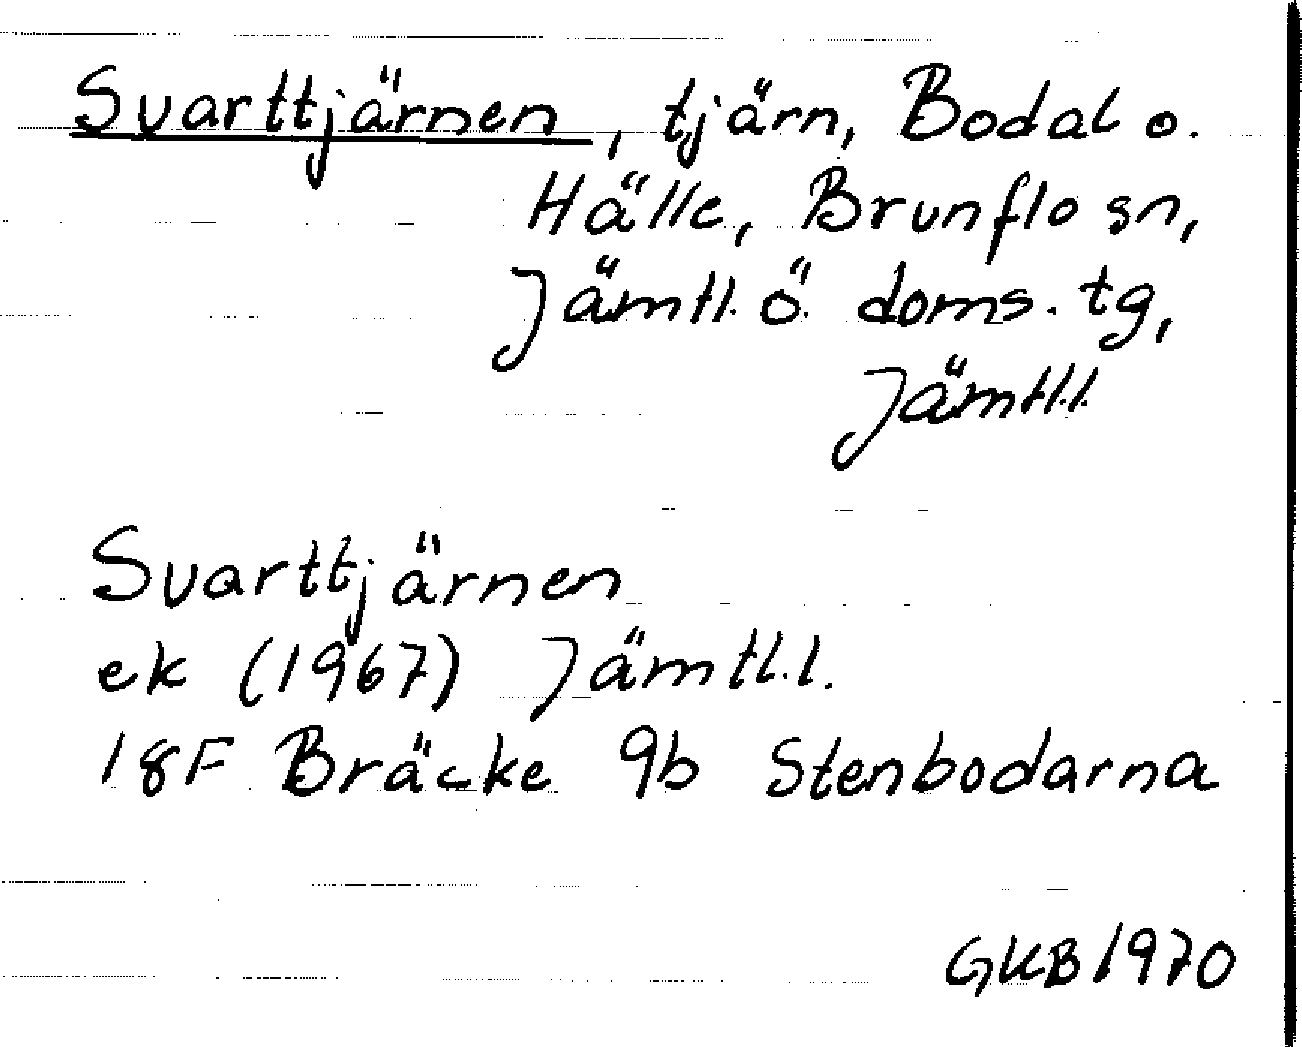 Svarttjärnen, tjärn, Bodal o.
Hälle, Brunflo sn,
Jämtl. ö. doms. tg,
Jämtl.l.
Svarttjärnen
ek (1967) Jämtl.l.
18F Bräcke 9b Stenbodarna
GKB 1970